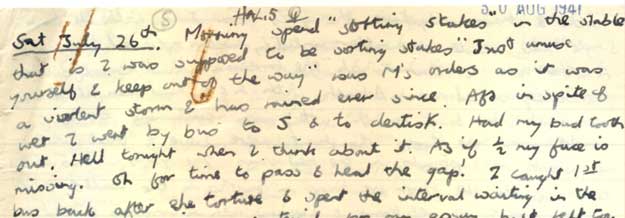 (5) HN.5 20 AUG 1941
Sat July 26th. Morning spend "sorting stakes" in the stable
that is I was supposed to be sorting stakes "Just amuse
yourself & keep out of the way" was M's orders as it was
a violent storm & has rained ever since. Aft in spite of
wet I went by bus to S & to dentist. Had my bad tooth
out. Hell tonight when I think about it. As if ½ my face is
missing. Oh for time to pass & heal the gap! I caught 1st
bus back after the torture & spent the interval waiting in the